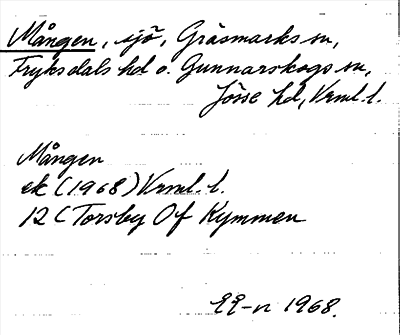 Mången, sjö, Gräsmarks sn,
Fryksdals hd o. Gunnarskogs sn,
Jösse hd, Vrml. l.
Mången
ek (1968) Vrml. l.
12 C Torsby Of Kymmen
1968.